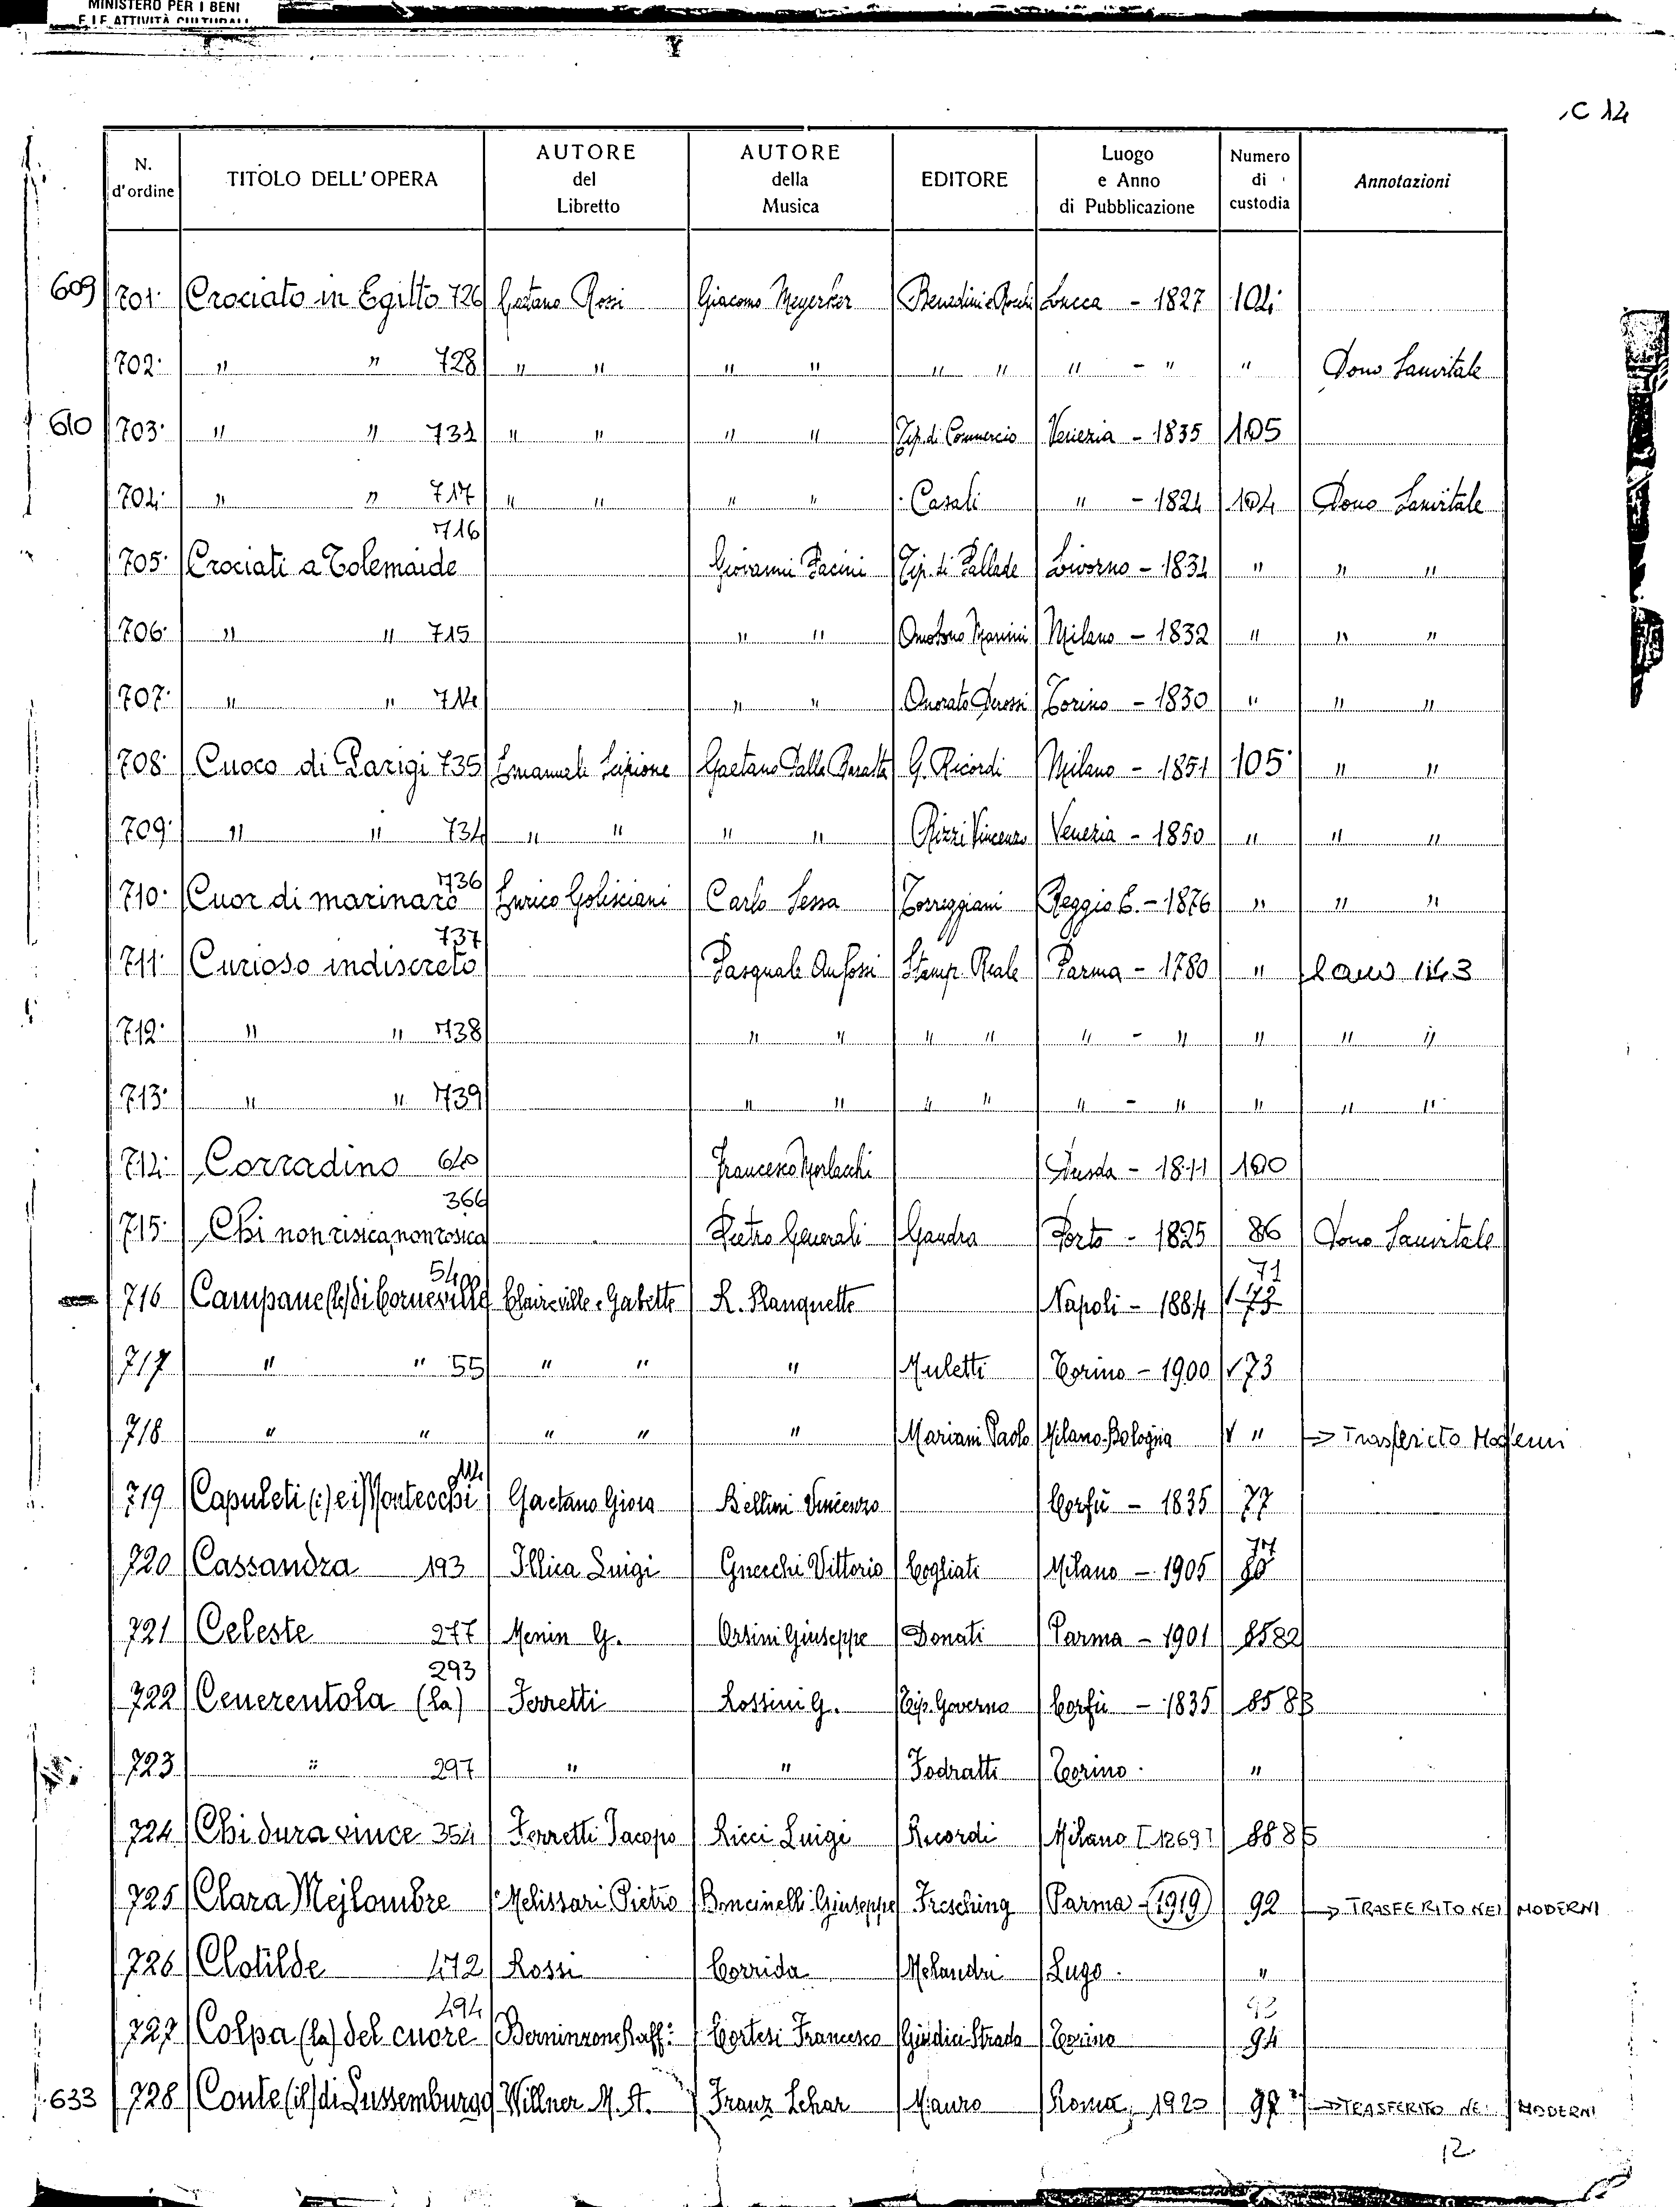 MINISTERO PER I BENI
E LE ATTIVITÀ CULTURALI
C 12
N. d'ordine TITOLO DELL'OPERA AUTORE del Libretto AUTORE della Musica EDITORE Luogo e Anno di Pubblicazione Numero di custodia Annotazioni
609 701 Crociato in Egitto 726 Gaetano Rossi Giacomo Meyerber Benedini e Rocchi Lucca - 1827 104
702 " " 728 " " " " " " " - " " Dono Sanvitale
610 703 " " 731 " " " " Tip. di Commercio Venezia - 1835 105
704 " " 717 " " " " Casali " - 1824 104 Dono Sanvitale
705 Crociati a Tolemaide 716 Giovanni Pacini Tip. di Pallade Livorno - 1831 " " "
706 " " 715 " " Omobono Manini Milano - 1832 " " "
707 " " 714 " " Onorato Derossi Torino - 1830 " " "
708 Cuoco di Parigi 735 Emanuele Scipione Gaetano Dalla Baratta G. Ricordi Milano - 1851 105 " "
709 " " 734 " " " " Rizzi Vincenzo Venezia - 1850 " " "
710 Cuor di marinaro 736 Enrico Golisciani Carlo Sessa Torreggiani Reggio E. - 1876 " " "
711 Curioso indiscreto 737 Pasquale Anfossi Stamp. Reale Parma - 1780 " 1143
712 " " 738 " " " " " - " " " "
713 " " 739 " " " " " - " " " "
714 Corradino 640 Francesco Morlacchi Dresda - 1811 100
715 Chi non risica, non rosica 366 Pietro Generali Gandra Porto - 1825 86 Dono Sanvitale
716 Campane (le) di Corneville 54 Claireville e Gabette R. Planquette Napoli - 1884 71 73
717 " " 55 " " " Muletti Torino - 1900 73
718 " " " " " Mariani Paolo Milano-Bologna " → Trasferito Moderni
719 Capuleti (i) e i Montecchi Gaetano Gioia Bellini Vincenzo Corfù - 1835 77
720 Cassandra 193 Illica Luigi Gnecchi Vittorio Cogliati Milano - 1905
721 Celeste 277 Menin G. Orsini Giuseppe Donati Parma - 1901 85 82
722 Cenerentola (la) 293 Ferretti Rossini G. Tip. Governo Corfù - 1835 85 83
723 " 297 " " Fodratti Torino "
724 Chi dura vince 354 Ferretti Jacopo Ricci Luigi Ricordi Milano [1869] 88 85
725 Clara Mejlombre Melissari Pietro Boncinelli Giuseppe Fresching Parma - 1919 92 → TRASFERITO NEI MODERNI
726 Clotilde 472 Rossi Corrida Melandri Lugo "
727 Colpa (la) del cuore 494 Berninzone Raff: Cortesi Francesco Giudici Strada Torino 93 94
633 728 Conte (il) di Lussemburgo Willner M. A. Franz Lehar Mauro Roma, 1920 97 → TRASFERITO NEI MODERNI
12